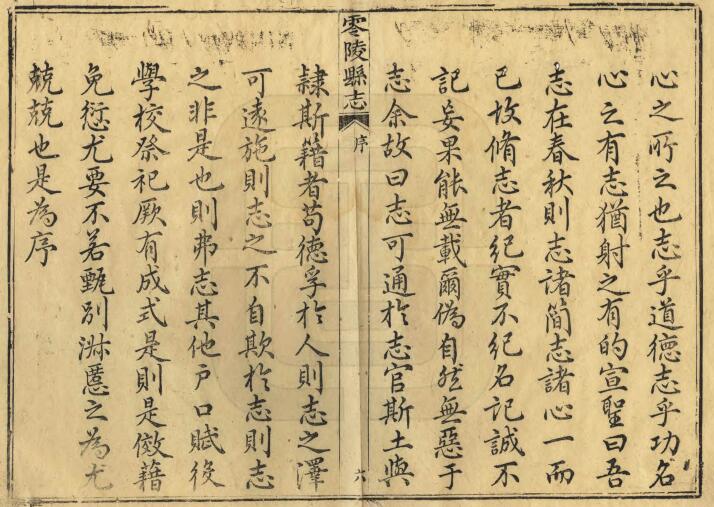 心之所之也志乎道德志乎功名
心之有志猶射之有的宣聖曰吾
志在春秋則志諸簡志諸心一而
已故脩志者紀實不紀名記誠不
記妄果能無載爾偽自然無惡于
志余故曰志可通於志官斯土與
零陵縣志
序
六
隸斯籍者苟德孚於人則志之澤
可遠施則志之不自欺於志則志
之非是也則弗志其他戶口賦役
學校祭祀厥有成式是則是傚藉
免愆尤要不若甄別淑慝之為尤
兢兢也是為序